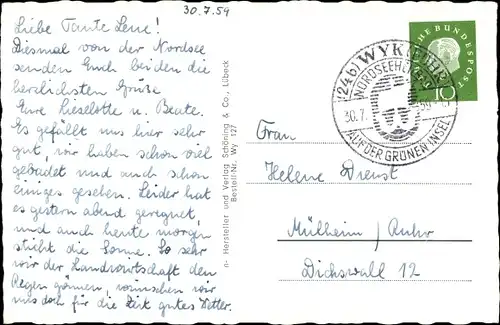 30.7.59
Liebe Tante Lene!
Diesmal von der Nordsee
senden Euch beiden die
herzlichsten Grüße
Eure Lieselotte u. Beate.
Es gefällt uns hier sehr
gut, wir haben schon viel
gebadet und auch schon
einiges gesehen. Leider hat
es gestern abend geregnet,
und auch heute morgen
sticht die Sonne. So sehr
wir der Landwirtschaft den
Regen gönnen, wünschen wir
uns doch für die Zeit gutes Wetter.
n- Hersteller und Verlag Schöning & Co., Lübeck
Bestell-Nr. Wy 127
DEUTSCHE BUNDESPOST
10
(24b) WYK (FÖHR)
NORDSEEHEILBAD
30.7.
AUF DER GRÜNEN INSEL
Frau
Helene Dienst
Mülheim/Ruhr
Dickswall 12